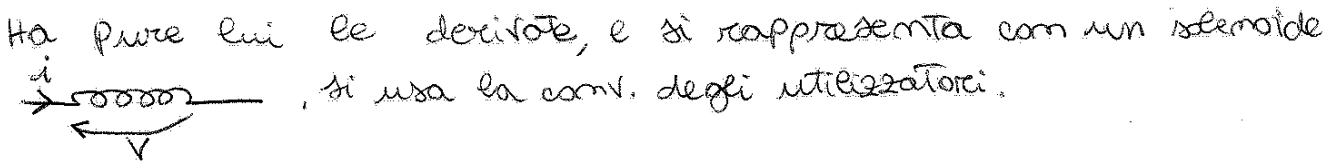 Ha pure lui le derivate, e si rappresenta con un solenoide
i
, si usa la conv. degli utilizzatori.
V